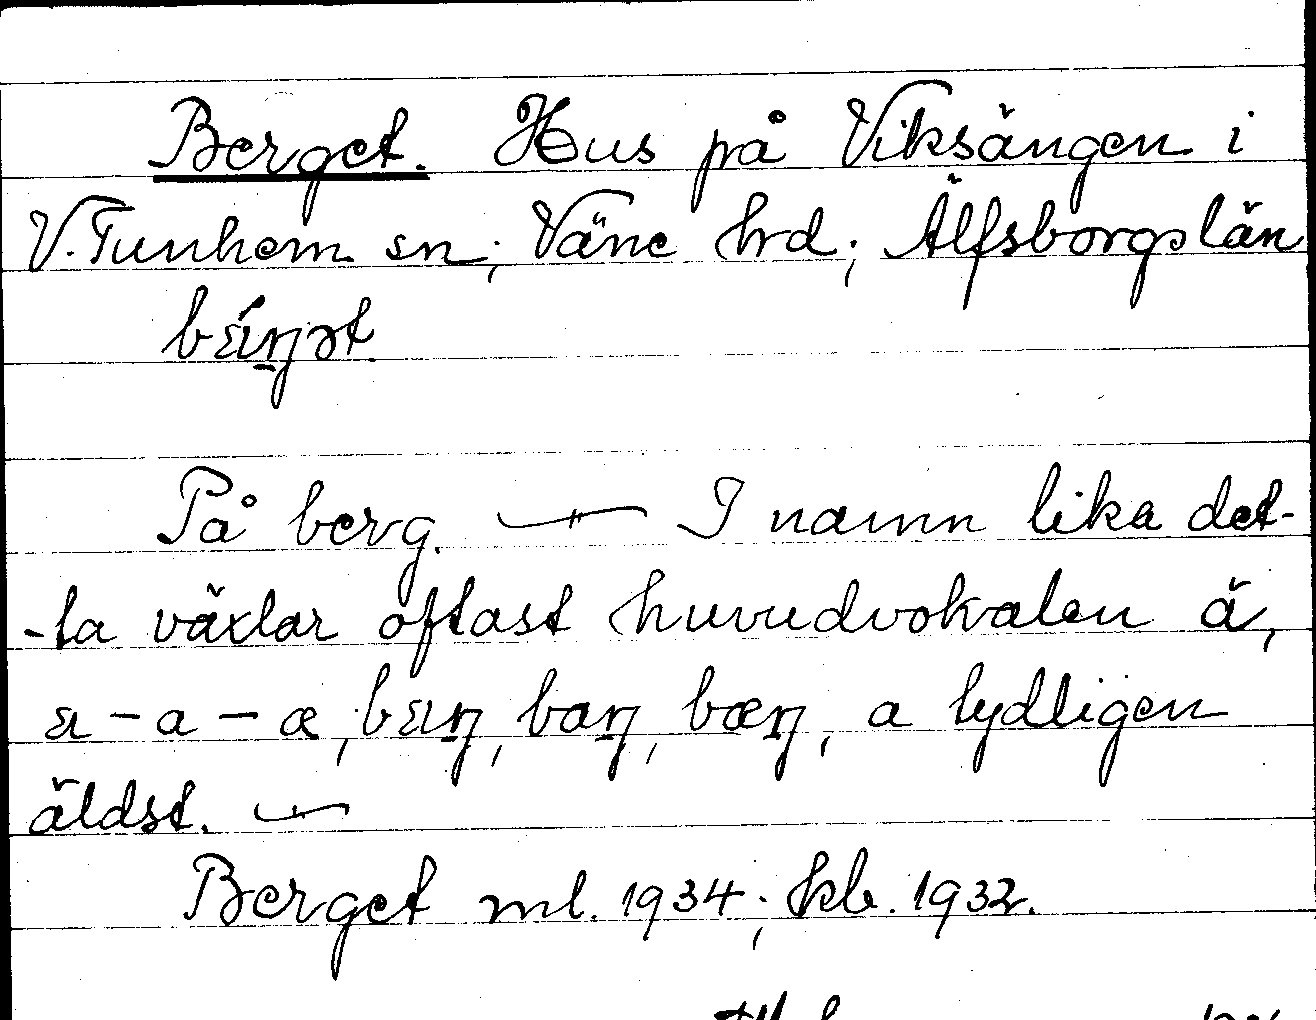 Berget. Hus på Viksängen i
V. Tunhem sn; Väne hrd; Älfsborgs län
På berg. — I namn lika det-
-ta växlar oftast huvudvokalen ä,
a lydligen
äldst. —
Berget ml. 1934; kb. 1932.